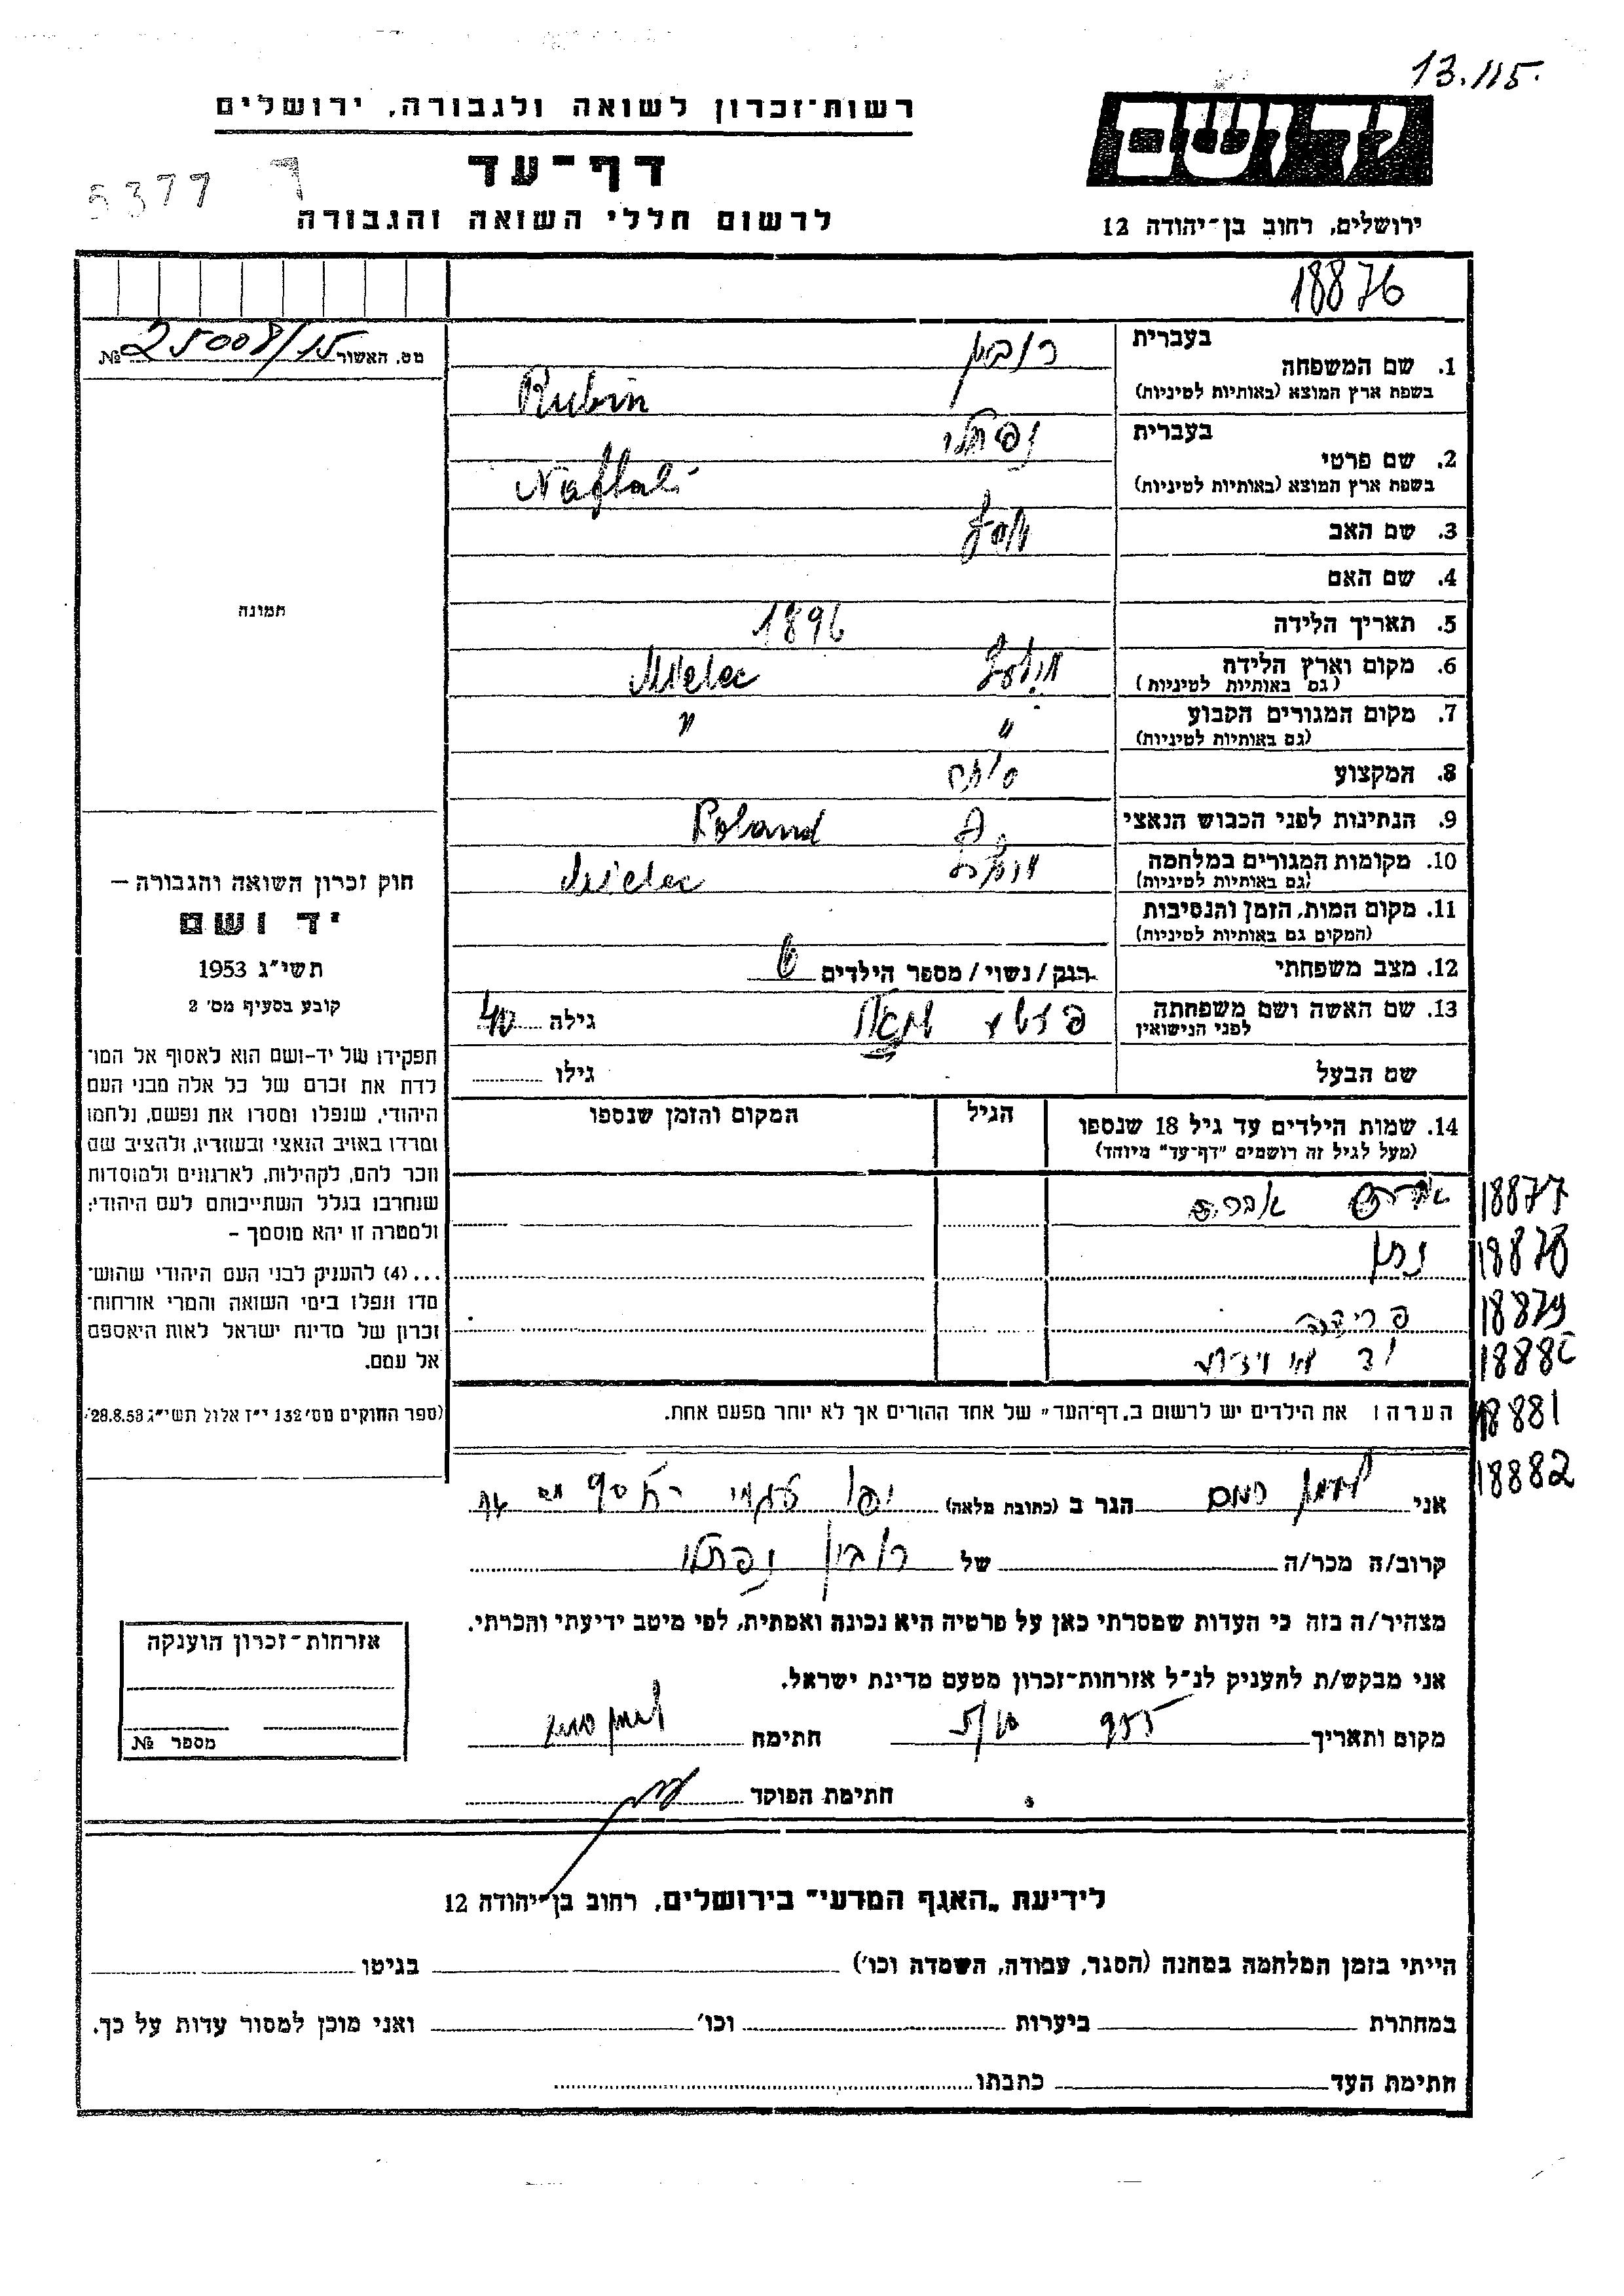 13.115.
רשות־זכרון לשואה ולגבורה, ירושלים
יד ושם
דף־עד
5377
לרשום חללי השואה והגבורה
ירושלים, רחוב בן־יהודה 12
18876
מס. האשור № 25008/15
1. שם המשפחה
בעברית רובין
בשפת ארץ המוצא (באותיות לטיניות) Rubin
2. שם פרטי
בעברית נפתלי
בשפת ארץ המוצא (באותיות לטיניות) Naftali
3. שם האב
4. שם האם
5. תאריך הלידה 1896
6. מקום וארץ הלידה Mielec
(גם באותיות לטיניות)
7. מקום המגורים הקבוע " "
(גם באותיות לטיניות)
8. המקצוע סוחר
9. הנתינות לפני הכבוש הנאצי Poland
10. מקומות המגורים במלחמה Mielec
(גם באותיות לטיניות)
11. מקום המות, הזמן והנסיבות
(המקום גם באותיות לטיניות)
12. מצב משפחתי רווק / נשוי / מספר הילדים
13. שם האשה ושם משפחתה גילה 40
לפני הנישואין
שם הבעל גילו
14. שמות הילדים עד גיל 18 שנספו הגיל המקום והזמן שנספו
(מעל לגיל זה רושמים "דף־עד" מיוחד)
אברהם 18877
נתן 18878
פרידה 18879
18880
הערה: את הילדים יש לרשום ב„דף־העד" של אחד ההורים אך לא יותר מפעם אחת. 18881
18882
אני הגר ב (כתובת מלאה) יפו
קרוב/ה מכר/ה של רובין נפתלי
מצהיר/ה בזה כי העדות שמסרתי כאן על פרטיה היא נכונה ואמתית, לפי מיטב ידיעתי והכרתי.
אני מבקש/ת להעניק לנ"ל אזרחות־זכרון מטעם מדינת ישראל.
מקום ותאריך חתימה
חתימת הפוקד
תמונה
חוק זכרון השואה והגבורה –
יד ושם
תשי"ג 1953
קובע בסעיף מס' 2
תפקידו של יד־ושם הוא לאסוף אל המו־
לדת את זכרם של כל אלה מבני העם
היהודי, שנפלו ומסרו את נפשם, נלחמו
ומרדו באויב הנאצי ובעוזריו, ולהציב שם
וזכר להם, לקהילות, לארגונים ולמוסדות
שנחרבו בגלל השתייכותם לעם היהודי;
ולמטרה זו יהא מוסמך –
...(4) להעניק לבני העם היהודי שהוש־
מדו ונפלו בימי השואה והמרי אזרחות־
זכרון של מדינת ישראל לאות היאספם
אל עמם.
(ספר החוקים מס' 132 י"ז אלול תשי"ג 28.8.53)
אזרחות־זכרון הוענקה
מספר №
לידיעת „האגף המדעי" בירושלים, רחוב בן־יהודה 12
הייתי בזמן המלחמה במחנה (הסגר, עבודה, השמדה וכו') בגיטו
במחתרת ביערות וכו' ואני מוכן למסור עדות על כך.
חתימת העד כתבתו